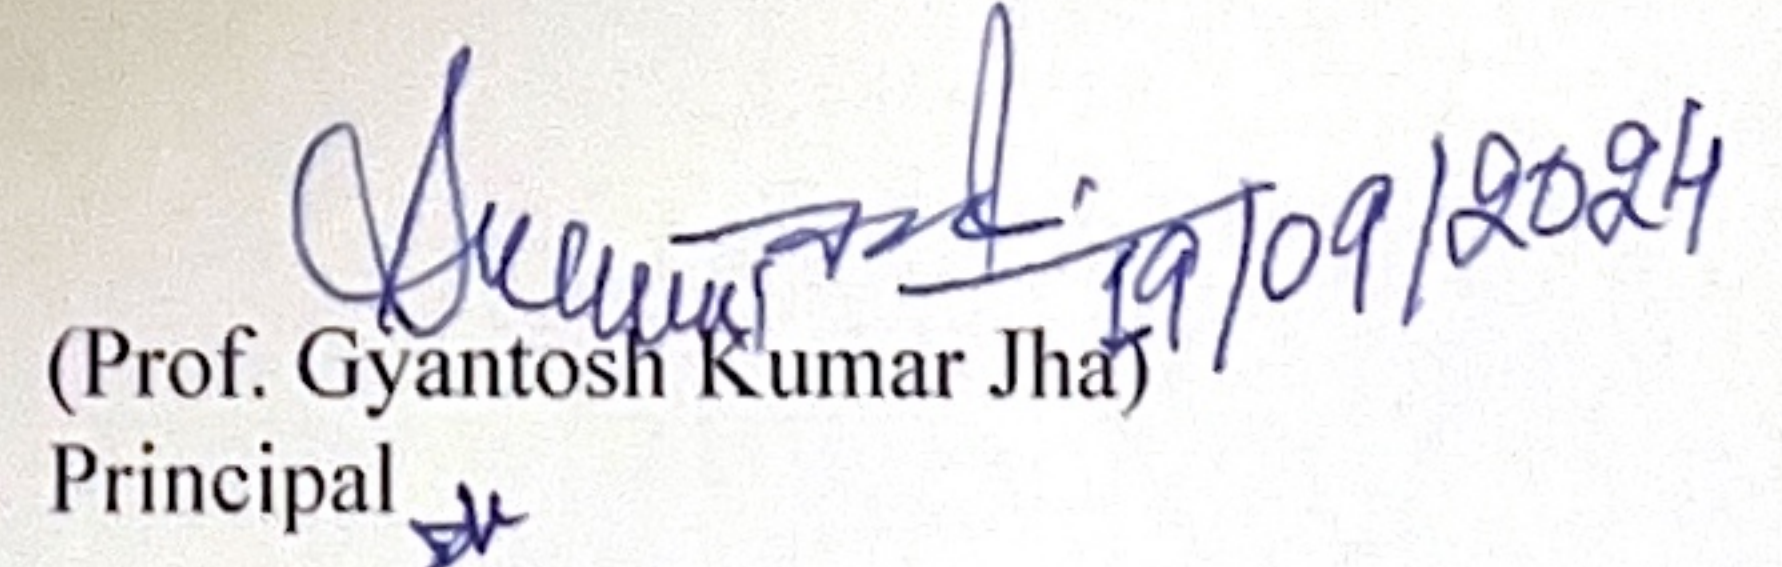 19/09/2024
(Prof. Gyantosh Kumar Jha)
Principal